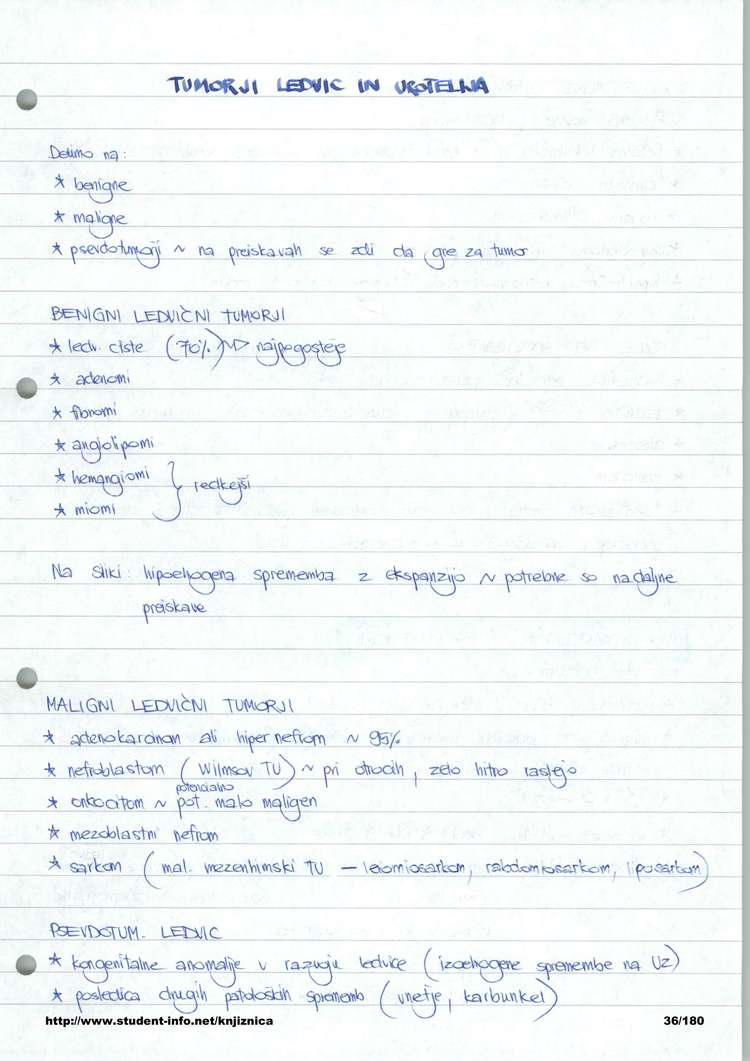 TUMORJI LEDVIC IN UROTELIJA
Delimo na:
* benigne
* maligne
* psevdotumorji ~ na preiskavah se zdi da gre za tumor
BENIGNI LEDVIČNI TUMORJI
* ledv. ciste (70%) ~> najpogosteje
* adenomi
* fibromi
* angiolipomi
* hemangiomi
* miomi } redkejši
Na sliki: hipoehogena sprememba z ekspanzijo ~ potrebne so nadaljne
preiskave
MALIGNI LEDVIČNI TUMORJI
* adenokarcinom ali hipernefrom ~ 95%
* nefroblastom (Wilmsov TU) ~ pri otrocih, zelo hitro rastejo
potencialno
* onkocitom ~ pot. malo maligen
* mezoblastni nefrom
* sarkom (mal. mezenhimski TU – leiomiosarkom, rabdomiosarkom, liposarkom)
PSEVDOTUM. LEDVIC
* kongenitalne anomalije v razvoju ledvice (izoehogene spremembe na UZ)
* posledica drugih patoloških sprememb (vnetje, karbunkel)
http://www.student-info.net/knjiznica 36/180